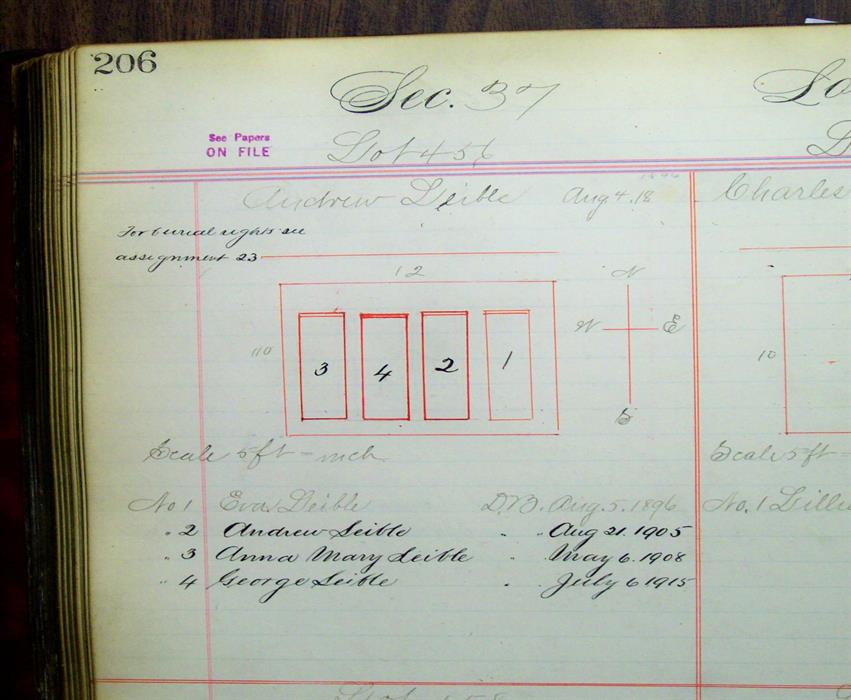 206
Sec. 37
Lo
See Papers
ON FILE
Lot 456
Andrew Leible Aug 4. 18
Charles
For burial rights see
assignment 23
12
N
W E
S
10
3 4 2 1
10
Scale 5 ft = inch
Scale 5 ft =
No 1 Eva Leible D.B. Aug. 5. 1896
No. 1 Lillie
" 2 Andrew Leible " " Aug 21. 1905
" 3 Anna Mary Leible " May 6. 1908
" 4 George Leible " July 6 1915